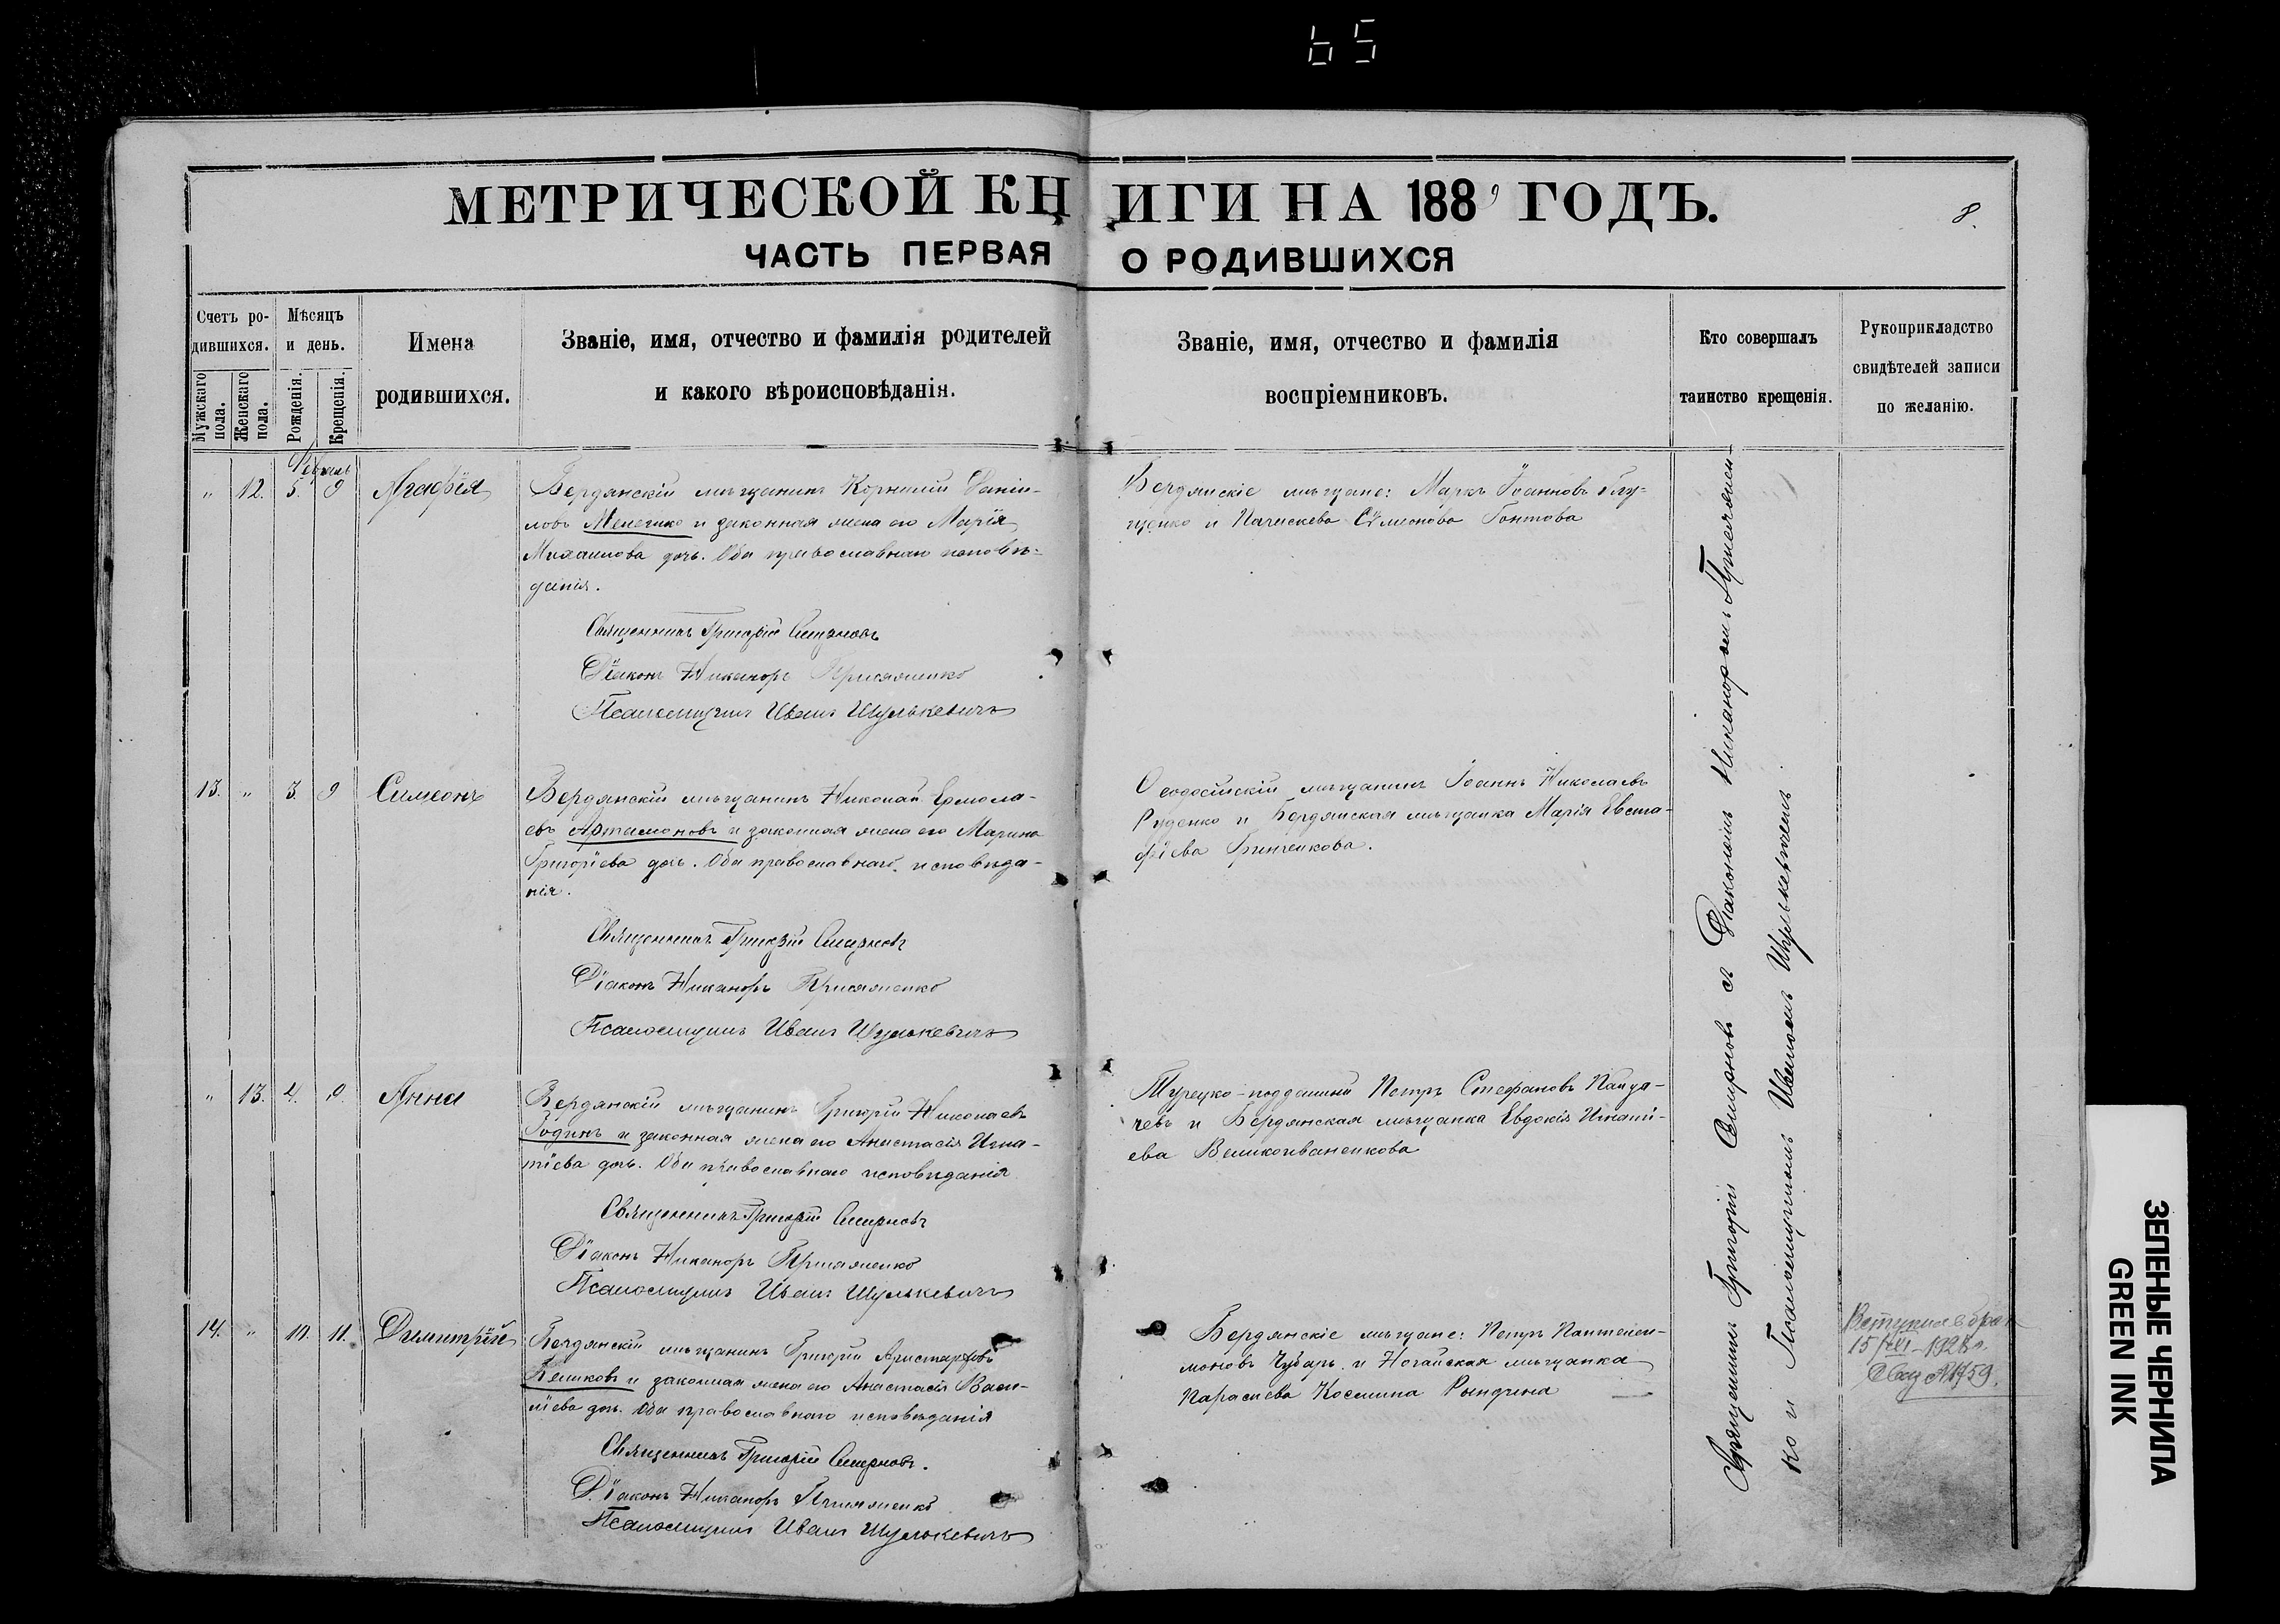 65
МЕТРИЧЕСКОЙ КНИГИ НА 1889 ГОДЪ.
8.
ЧАСТЬ ПЕРВАЯ О РОДИВШИХСЯ
Счетъ ро-
дившихся.
Мужскаго
пола.
Женскаго
пола.
Мѣсяцъ
и день.
Рожденія.
Крещенія.
Имена
родившихся.
Званіе, имя, отчество и фамилія родителей
и какого вѣроисповѣданія.
Званіе, имя, отчество и фамилія
воспріемниковъ.
Кто совершалъ
таинство крещенія.
Рукоприкладство
свидѣтелей записи
по желанію.
Февраль
" 12. 5. 9 Агафія
Бердянскій мѣщанинъ Корнилій Даніи-
ловъ и законная жена его Марія
Михаилова дочь. Оба православнаго исповѣ-
данія.
Священникъ Григорій Смирновъ
Діаконъ Никаноръ Присяженко
Псаломщикъ Иванъ Шулькевичъ
Бердянскіе мѣщане: Маркъ Іоанновъ Глу-
щенко и Параскева Сѵмеонова Гонтова
13. " 3. 9 Симеонъ
Бердянскій мѣщанинъ Николай Ермола-
евъ Артамоновъ и законная жена его Марина
Григоріева дочь. Оба православнаго исповѣда-
нія.
Священникъ Григорій Смирновъ
Діаконъ Никаноръ Присяженко
Псаломщикъ Иванъ Шулькевичъ
Ѳеодосійскій мѣщанинъ Іоаннъ Николаевъ
Руденко и Бердянская мѣщанка Марія Евста-
фіева Гринченкова.
" 13. 4. 9. Анна
Бердянскій мѣщанинъ Григорій Николаевъ
Годинъ и законная жена его Анастасія Игна-
тіева дочь. Оба православнаго исповѣданія
Священникъ Григорій Смирновъ
Діаконъ Никаноръ Присяженко
Псаломщикъ Иванъ Шулькевичъ
Турецко-подданный Петръ Стефановъ
и Бердянская мѣщанка Евдокія Игнаті-
ева Великоиваненкова
14. " 10. 11. Димитрій
Бердянскій мѣщанинъ Григорій Аристарховъ
и законная жена его Анастасія Васи-
ліева дочь. Оба православнаго исповѣданія
Священникъ Григорій Смирновъ.
Діаконъ Никаноръ Присяженко
Псаломщикъ Иванъ Шулькевичъ
Бердянскіе мѣщане: Петръ Пантелей-
моновъ Чубарь и Ногайская мѣщанка
Параскева Космина Рындина
Священникъ Григорій Смирновъ съ Діакономъ Никаноромъ Присяжен-
ко и Псаломщикомъ Иваномъ Шулькевичемъ.
Вступил в брак
15/ 1928 г.
59.
ЗЕЛЕНЫЕ ЧЕРНИЛА
GREEN INK